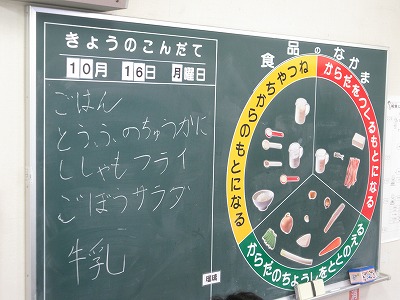 きょうのこんだて
10月 16日 月曜日
ごはん
とうふのちゅうかに
ししゃもフライ
ごぼうサラダ
牛乳
食品のなかま
ちからやねつのもとになる
からだをつくるもとになる
からだのちょうしをととのえる